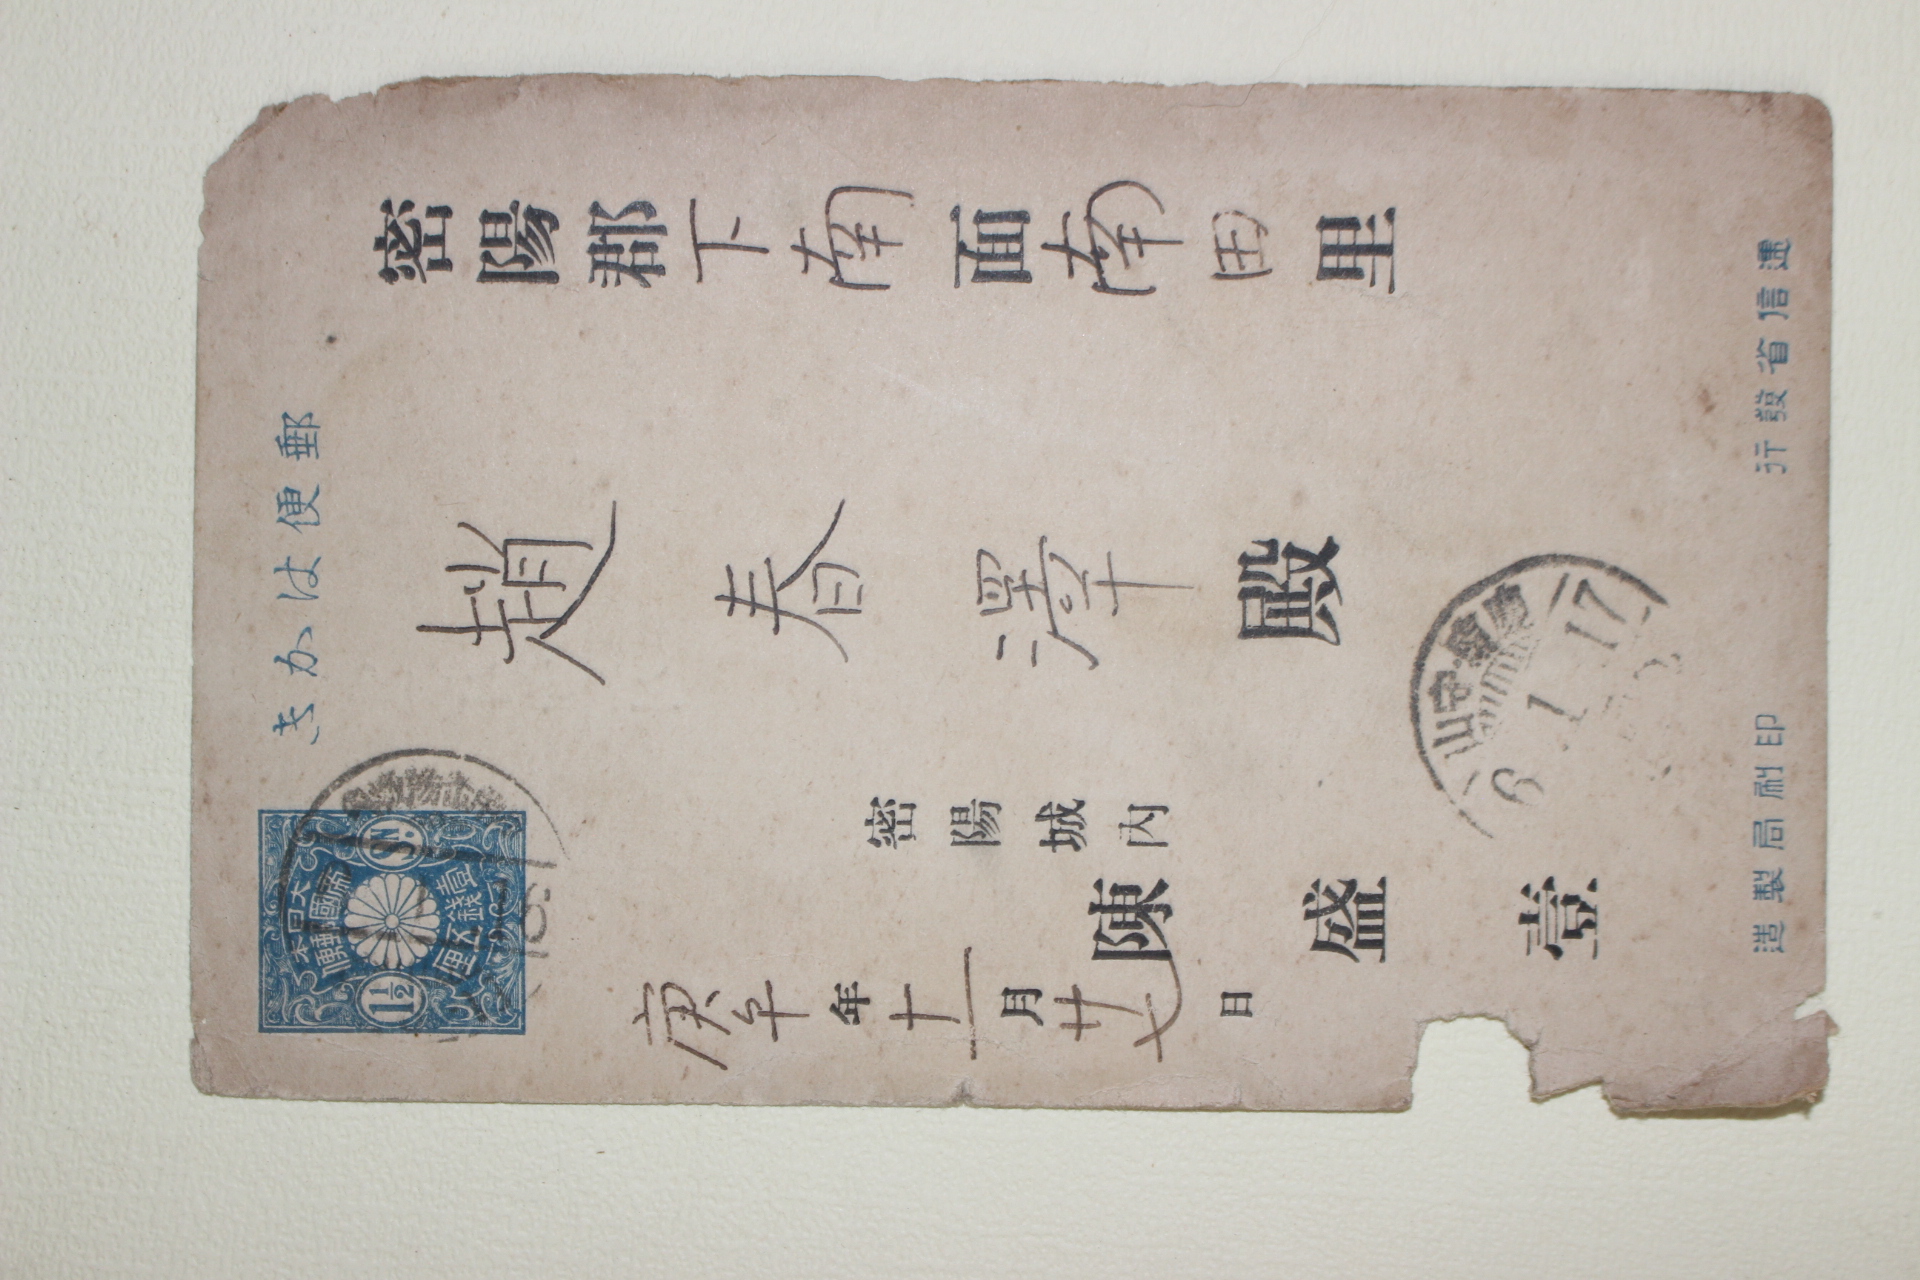 郵便はかき
大日本
帝國郵便
1½
SN.
壹錢五厘
密陽郡下南面南田里
趙春澤殿
密陽城内
陳盛壹
庚午年十一月廿七日
守山
6.1.17
逓信省發行
印刷局製造